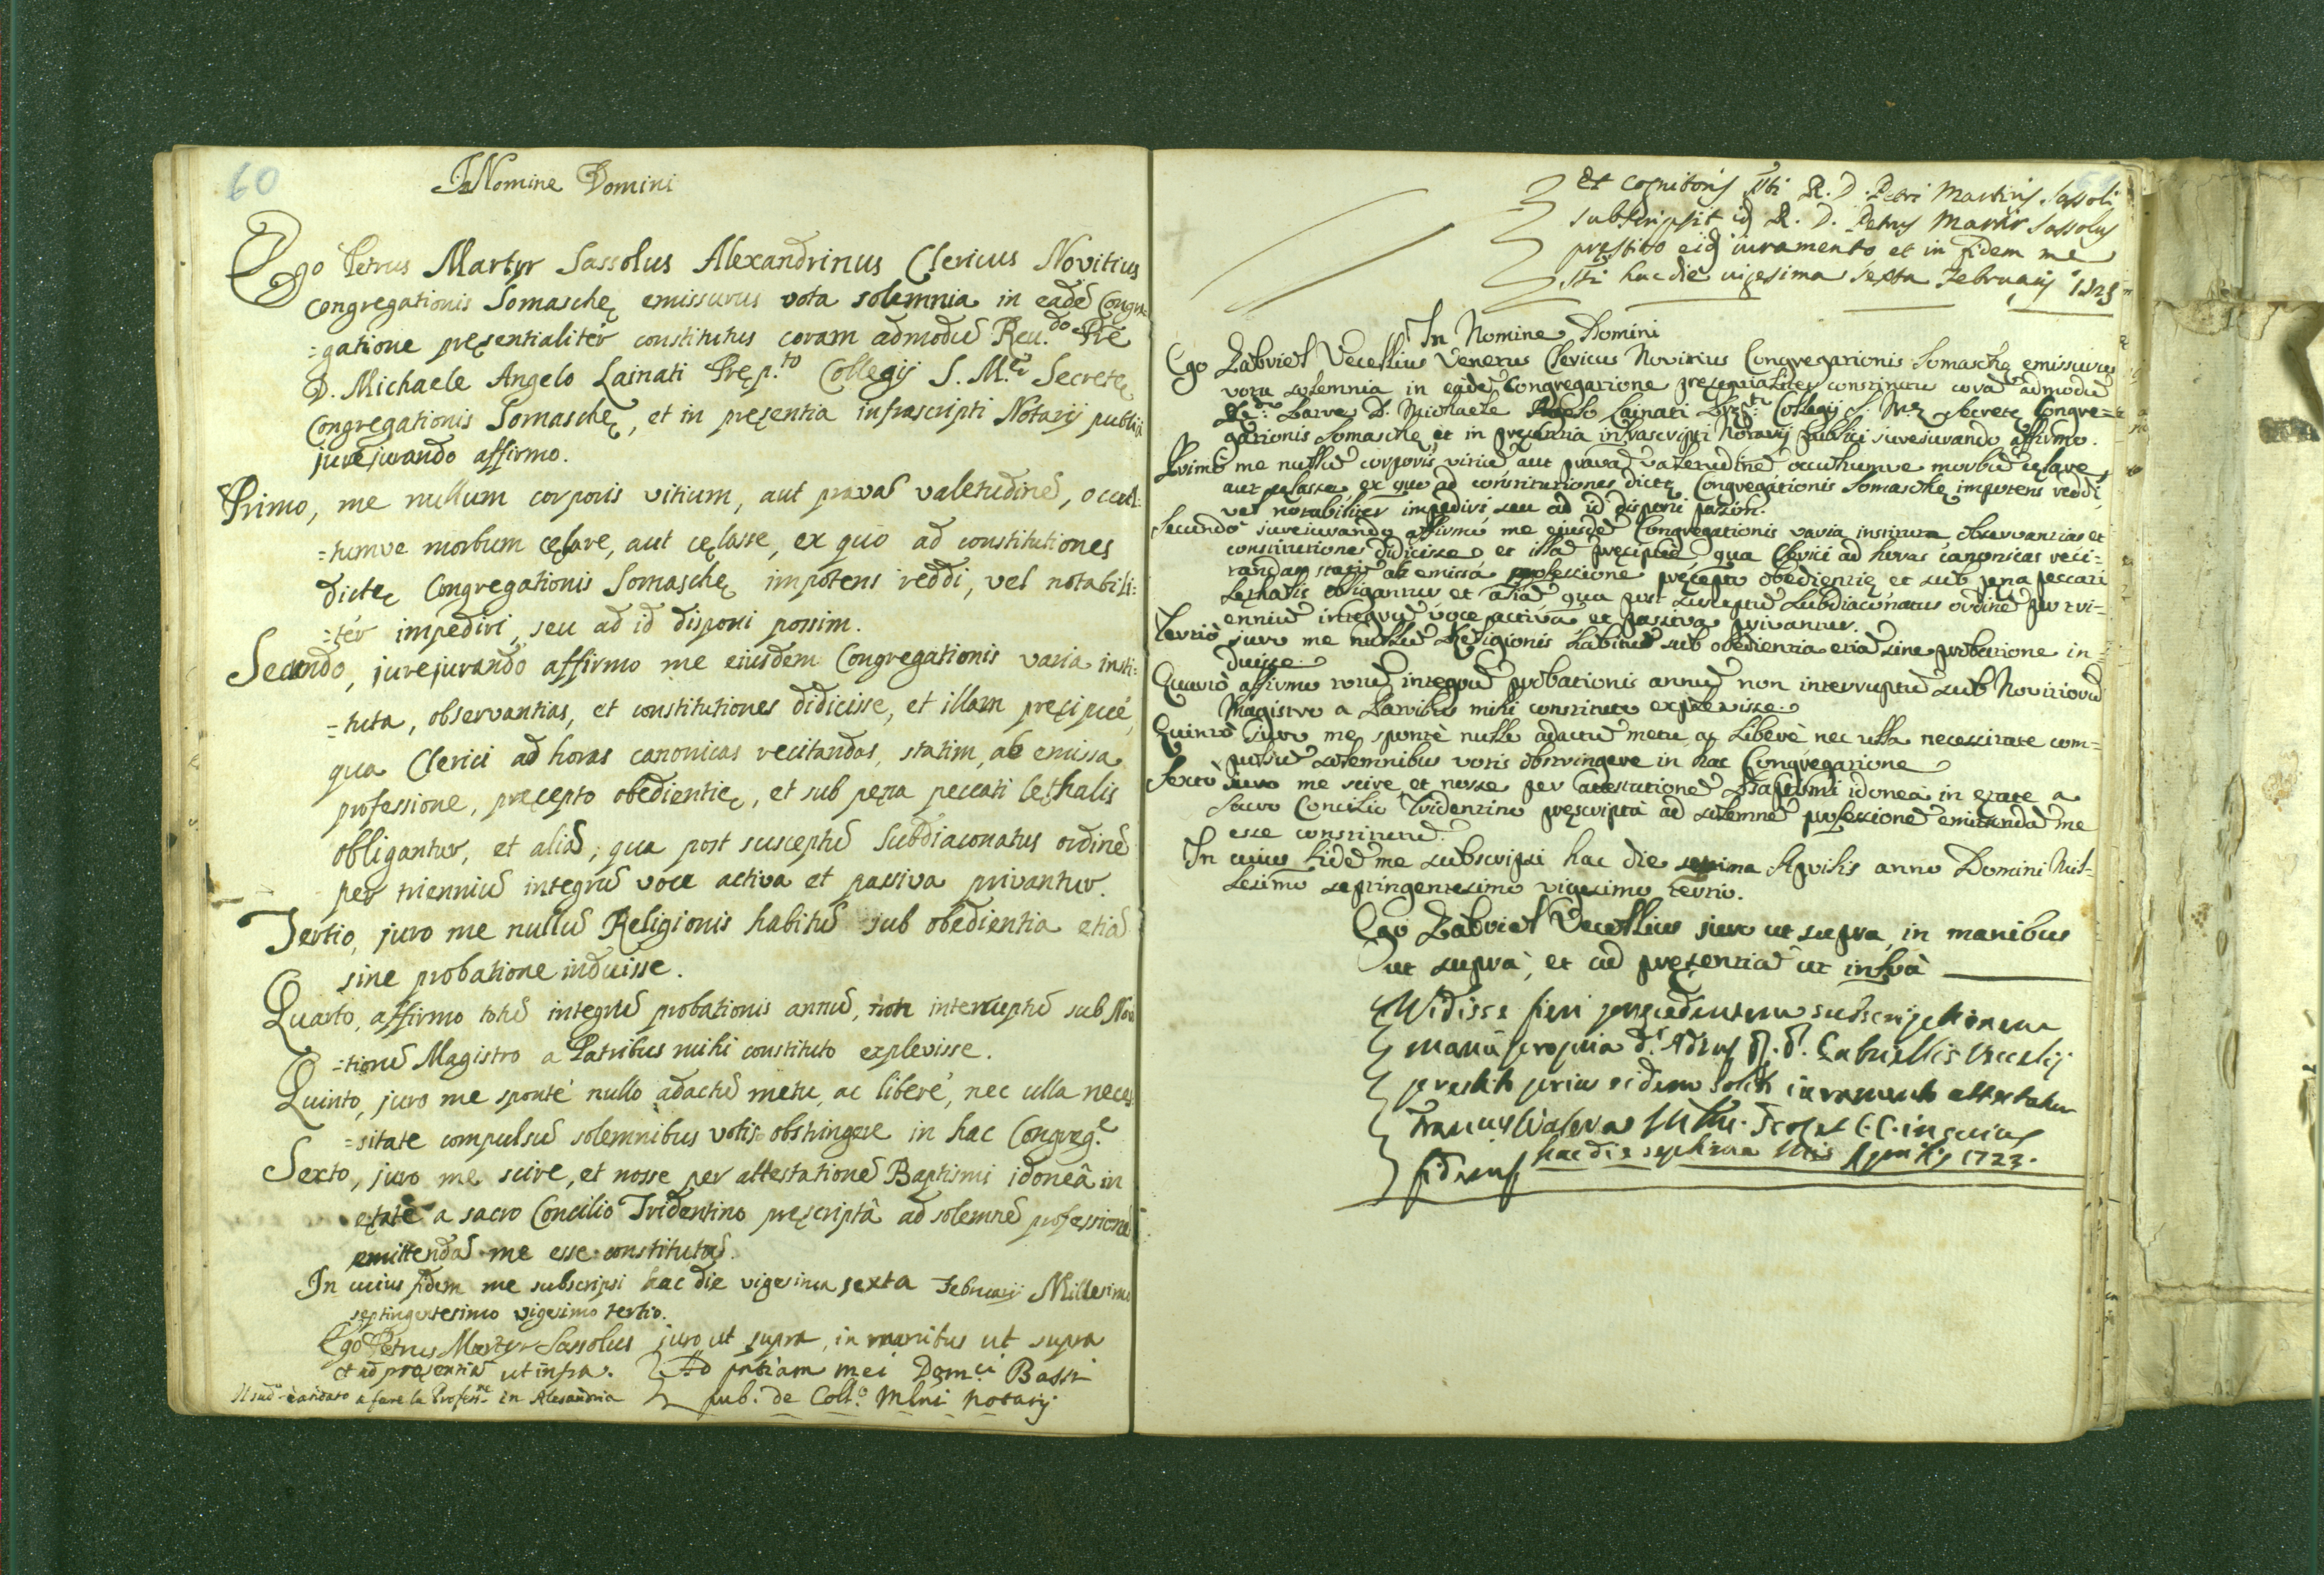 60
In Nomine Domini
Ego Petrus Martyr Sassolus Alexandrinus Clericus Novitius
Congregationis Somaschę emissurus vota solemnia in eadē Congre
=gatione pręsentialitér constitutus coram admodū Reu.do Prē
D. Michaele Angelo Lainati Pręp.to Collegij S. M.ę Secretę
Congregationis Somaschę, et in pręsentia infrascripti Notarij publici
jurejurando affirmo.
Primo, me nullum corporis vitium, aut pravā valetudinē, occul:
=tumve morbum cęlare, aut cęlasse, ex quo ad constitutiones
dictę Congregationis Somaschę impotens reddi, vel notabili:
=tér impediri, seu ad id disponi possim.
Secundo, jurejurando affirmo me eiusdem Congregationis varia insti:
=tuta, observantias, et constitutiones didicisse, et illam pręcipué,
qua Clerici ad horas canonicas recitandas, statim, ab emissa
professione, pręcepto obedientię, et sub pęna peccati lęthalis
obligantur, et aliā, qua post susceptū Subdiaconatus ordinē
per trienniū integrū voce activa et passiva privantur.
Tertio, juro me nullū Religionis habitū sub obedientia etiā
sine probatione induisse.
Quarto, affirmo totū integrū probationis annū, non interruptū sub Novi
=tiorū Magistro a Patribus mihi constituto explevisse.
Quinto, juro me sponté nullo adactū metu, ac liberé, nec ulla neces
=sitate compulsū solemnibus votis obstringere in hac Congreg.e
Sexto, juro me scire, et nosse per attestationē Baptismi idoneâ in
ętate a sacro Concilio Tridentino pręscriptâ ad solemnē professionē
emittendā me esse constitutū.
In cuius fidem me subscripsi hac die vigesima sexta Februarij Millesimo
septingentesimo vigesimo tertio.
Ego Petrus Martyr Sassolus juro ut supra, in manibus ut supra
et ad pręsentiā ut infra. Ad pntiam mei Dom.ci Bassi
Il sud.o è andato a fare la Profess.ne in Alesandria pub. de Coll.o Mlni notarij
Et cognitoris R. D. Petri Martiris Sassoli
subscripsit R. D. Petrus Martir Sassolus
prestito eid iuramento et in fidem me
hac die vigesima sexta Februarij
In Nomine Domini
Ego Gabriel Vecellius Venetus Clericus Novitius Congregationis Somaschę emissurus
vota solemnia in eadē Congregatione pręsentialiter constitutu corā admodū
Patre D. Michaele Angelo Lainati Collegij S. M.ę Secretę Congre=
gationis Somaschę et in pręsentia infrascripti Notarij publici jurejurando affirmo.
Primò me nullū corporis vitiū aut pravā valetudinē occultumve morbū cęlare,
aut cęlasse, ex quo ad constitutiones dictę Congregationis Somaschę impotens reddi,
vel notabiliter impediri, seu ad id disponi possim.
Secundò jurejurando affirmo me eiusdē Congregationis varia instituta observantias et
constitutiones didicisse et illā pręcipuè qua Clerici ad horas canonicas reci=
tandas statim ab emissâ professione pręcepto obedientię et sub pęna peccati
Lęthalis obligantur et aliā qua post susceptū Subdiaconatus ordinē per tri=
enniū integrū voce activâ et passiva privantur.
Tertiò juro me nullū Religionis habitū sub obedientia etiā sine probatione in=
duisse.
Quartò affirmo totū integrū probationis annū non interruptū sub Novitiorū
Magistro a Patribus mihi constituto explevisse.
Quintò juro me spontè nullo adactū metu ac liberè nec ulla necessitate com=
pulsū solemnibus votis obstringere in hac Congregatione
Sextò juro me scire et nosse per attestationē Baptismi idoneâ in ętate a
Sacro Concilio Tridentino pręscriptâ ad solemnē professionē emittendā me
esse constitutū.
In cuius fidē me subscripsi hac die septima Aprilis anno Domini Mil-
lesimo septingentesimo vigesimo tertio.
Ego Gabriel Vecellius juro ut supra in manibus
ut suprà, et ad pręsentiā ut infrà
Vidisse fieri precedentem subscriptionem
manu propria Gabriellis Vecelij
prestito prius eidem solito iuramento attestatur
in cuius
fidem hac die septima Aprilis 1723.